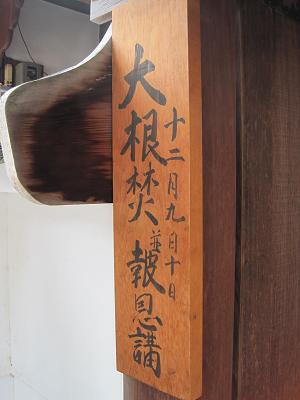 十二月九日十日
大根焚並報恩講